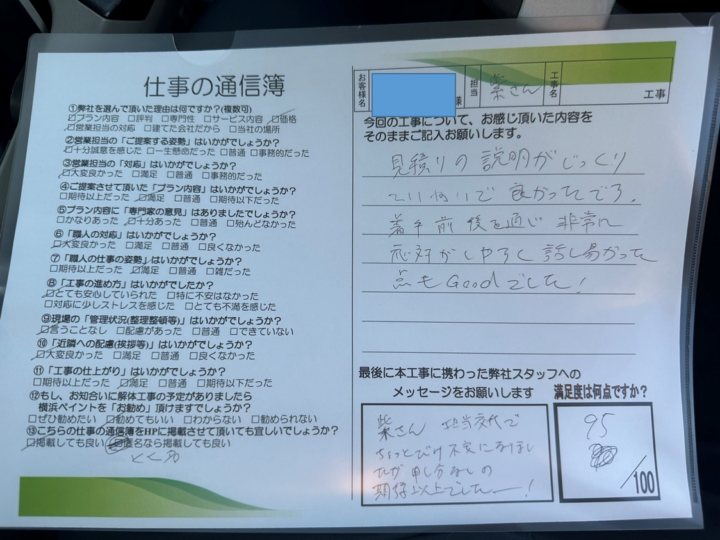 仕事の通信簿
①弊社を選んで頂いた理由は何ですか?(複数可)
□プラン内容 □評判 □専門性 □サービス内容 ☑価格
☑営業担当の対応 □建てた会社だから □当社の場所
②営業担当の「ご提案する姿勢」はいかがでしょうか?
☑十分誠意を感じた □一生懸命だった □普通 □事務的だった
③営業担当の「対応」はいかがでしょうか?
☑大変良かった □満足 □普通 □事務的だった
④ご提案させて頂いた「プラン内容」はいかがでしょうか?
□期待以上だった ☑満足 □普通 □期待以下だった
⑤プラン内容に「専門家の意見」はありましたでしょうか?
□かなりあった ☑十分あった □普通 □殆んどなかった
⑥「職人の対応」はいかがでしょうか?
☑大変良かった □満足 □普通 □良くなかった
⑦「職人の仕事の姿勢」はいかがでしょうか?
□期待以上だった ☑満足 □普通 □雑だった
⑧「工事の進め方」はいかがでしたか?
☑とても安心していられた □特に不安はなかった
□対応に少しストレスを感じた □とても不満を感じた
⑨現場の「管理状況(整理整頓等)」はいかがでしょうか?
☑言うことなし □配慮があった □普通 □できていない
⑩「近隣への配慮(挨拶等)」はいかがでしょうか?
☑大変良かった □満足 □普通 □良くなかった
⑪「工事の仕上がり」はいかがでしょうか?
□期待以上だった ☑満足 □普通 □期待以下だった
⑫もし、お知合いに解体工事の予定がありましたら
横浜ペイントを「お勧め」頂けますでしょうか?
□ぜひ勧めたい ☑勧めてもいい □わからない □勧められない
⑬こちらの仕事の通信簿をHPに掲載させて頂いても宜しいでしょうか?
☑掲載しても良い 匿名なら掲載しても良い
お客様名 様 担当 柴さん 工事名 工事
今回の工事について、お感じ頂いた内容を
そのままご記入お願いします。
見積りの説明がじっくり
ていねいで良かったです。
着手前後を通じ非常に
応対がしやすく話し易かった
点もGoodでした!
最後に本工事に携わった弊社スタッフへの
メッセージをお願いします
柴さん 担当交代で
ちょっとだけ不安になりまし
たが申し分なしの
期待以上でしたー!
満足度は何点ですか?
95
/100